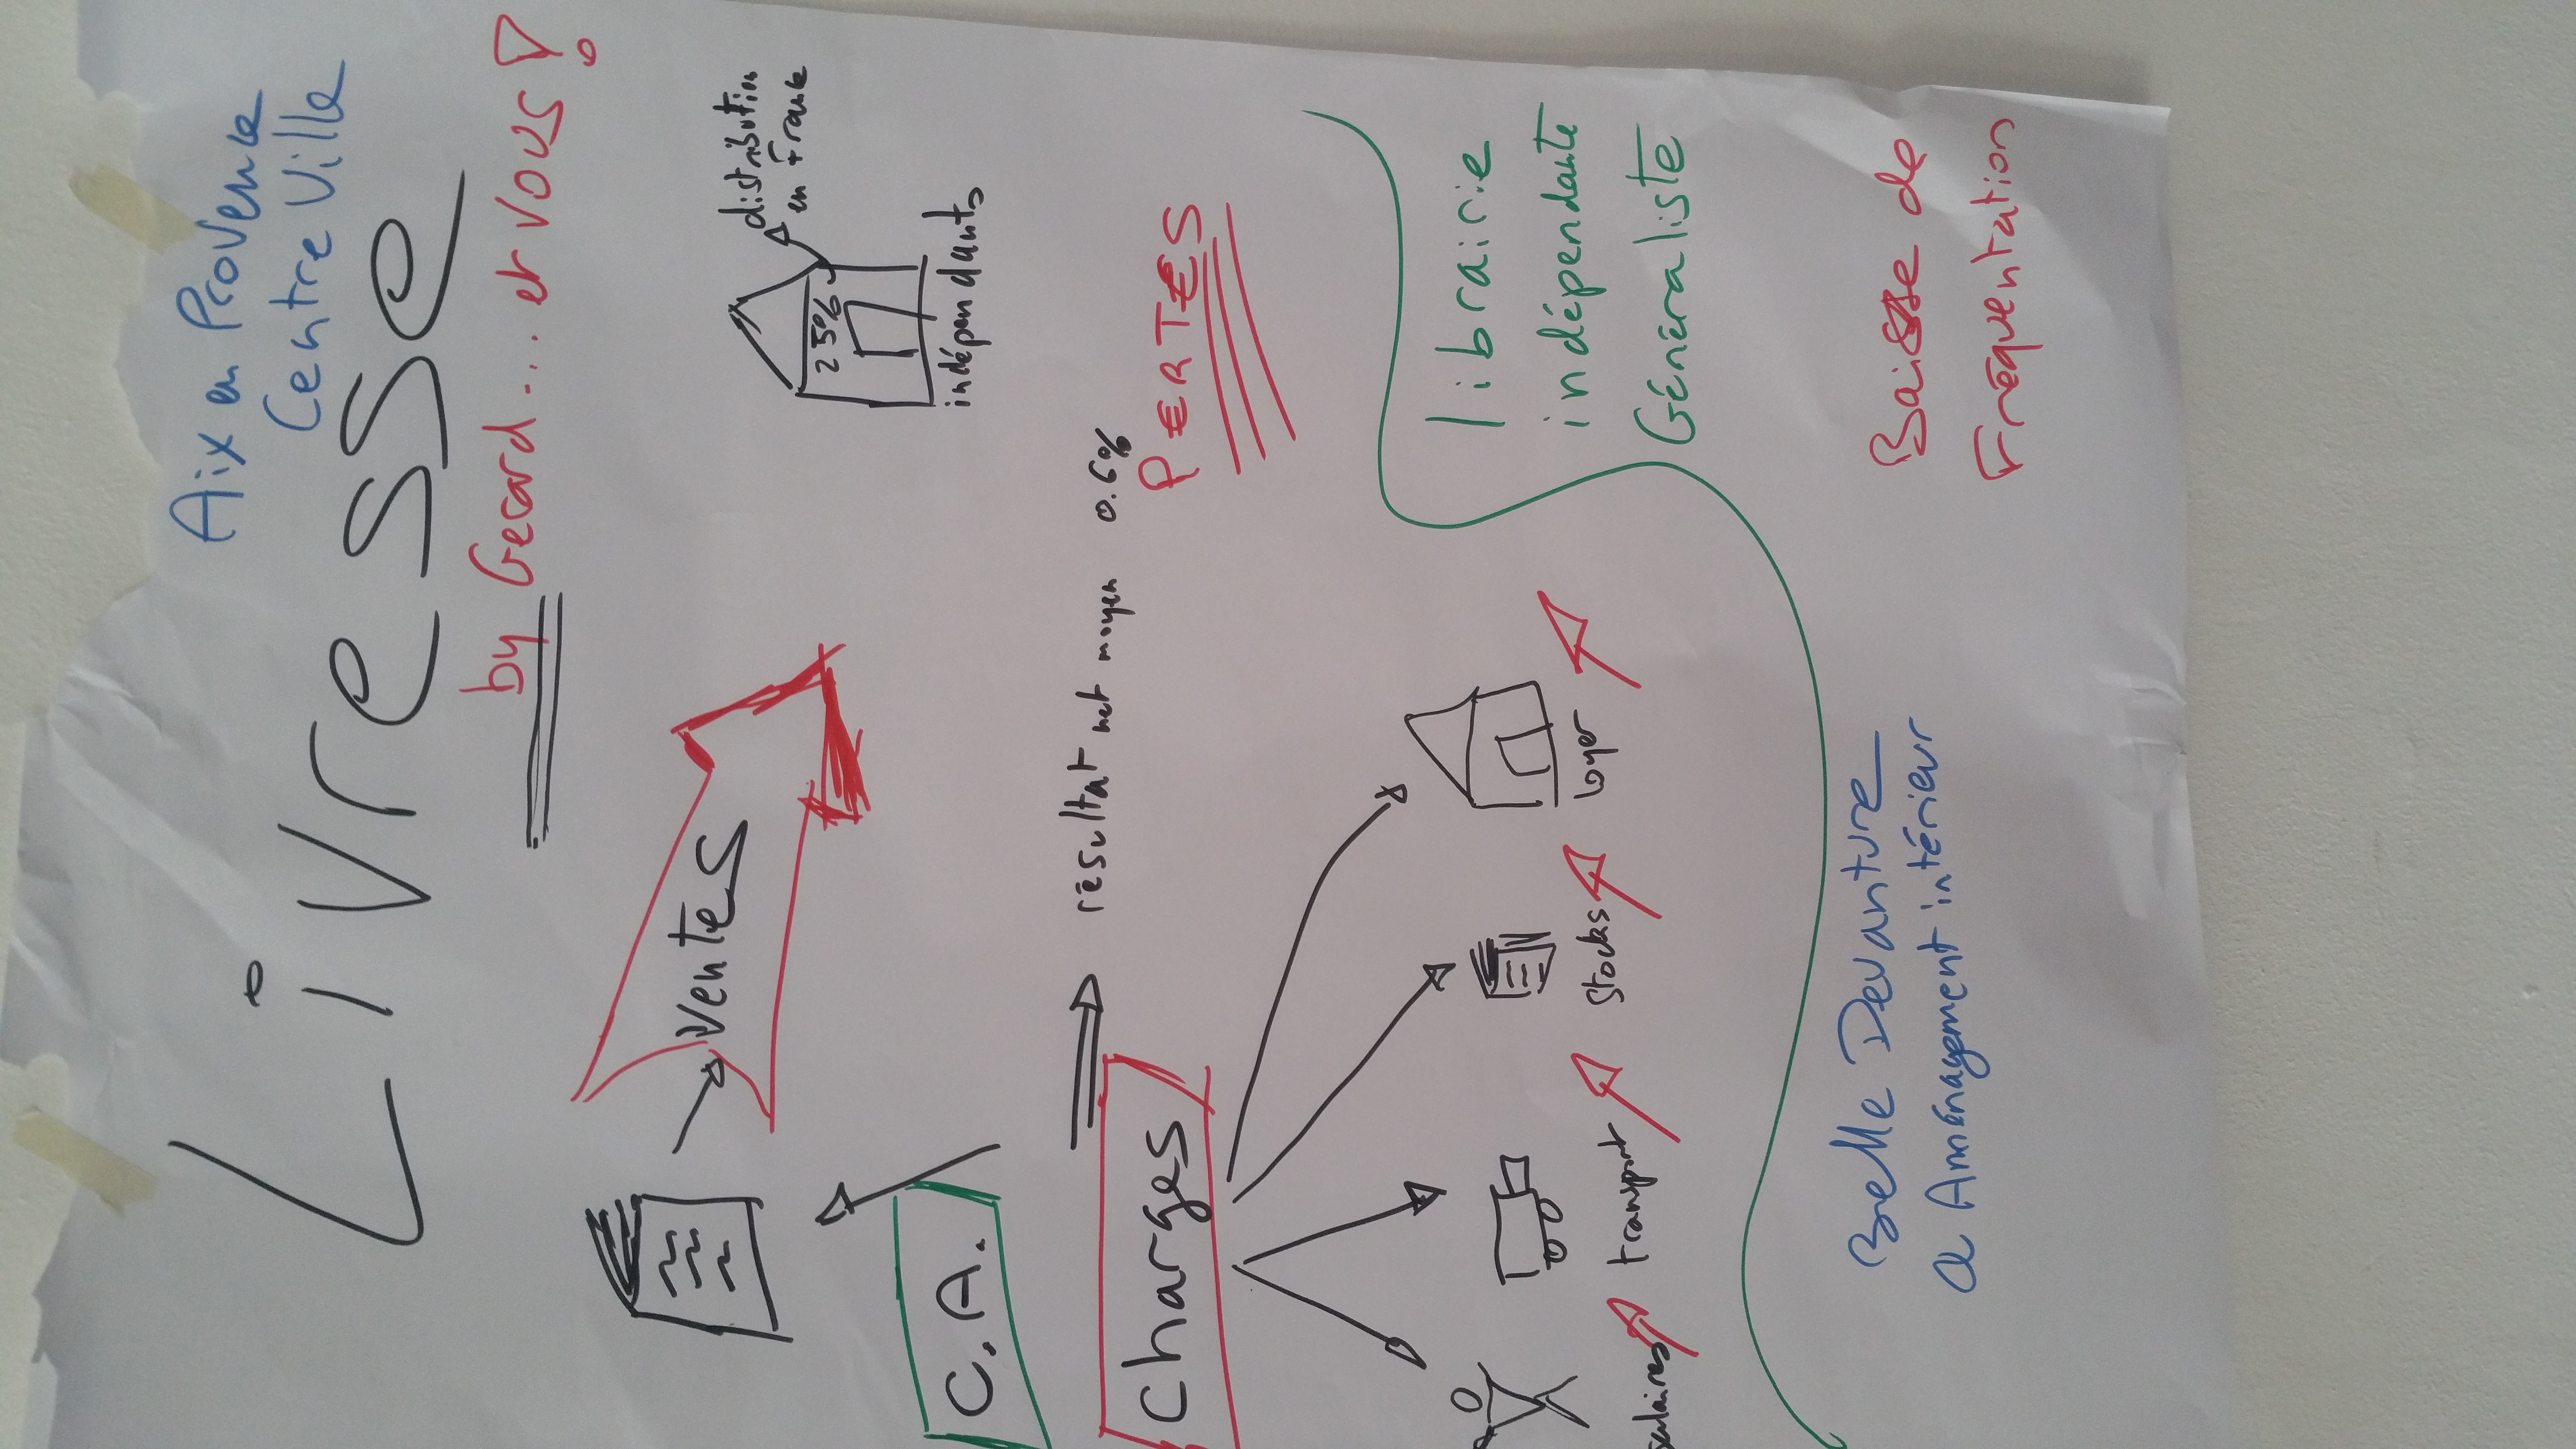 Aix en Provence
Centre Ville
Livresse
by Gerard... et vous!
Ventes
25%
distribution
en France
indépendants
C.A.
résultat net moyen 0.6%
PERTES
Charges
salaires
transport
stocks
loyer
librairie
indépendante
Généraliste
Belle Devanture
& Aménagement intérieur
Baisse de
Fréquentation